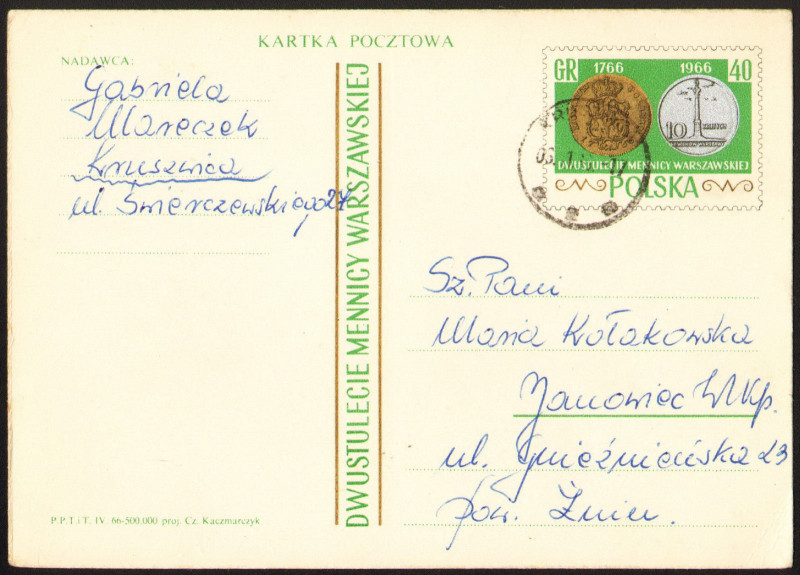 KARTKA POCZTOWA
NADAWCA:
Gabriela
Mareczek
Kruszwica
ul. Świerczewskiego 27
DWUSTULECIE MENNICY WARSZAWSKIEJ
GR 1766 1966 40
10 ZŁOTYCH
DWUSTULECIE MENNICY WARSZAWSKIEJ
POLSKA
Sz. Pani
Maria Kołakowska
Janowiec Wlkp.
ul. Gnieźnieńska 23
pow. Żnin.
P.P.T.i T. IV. 66-500.000 proj. Cz. Kaczmarczyk